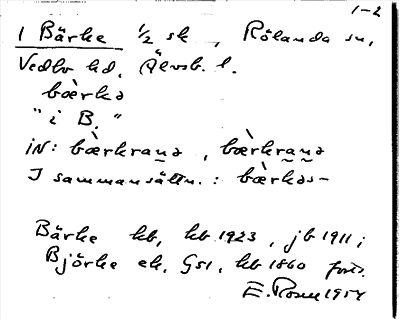 1-2
1 Bärke ½ sk , Rölanda sn,
Vedbo hd, Älvsb. l.
bæ̀rkə
" i B. "
iN: bærkrana , bæ̀rkrana
I sammansättn. : bæ̀rkəs-
Bärke hb, kb 1923, jb 1911;
Björke ek, GS1, kb 1860
E. Rosell 1954